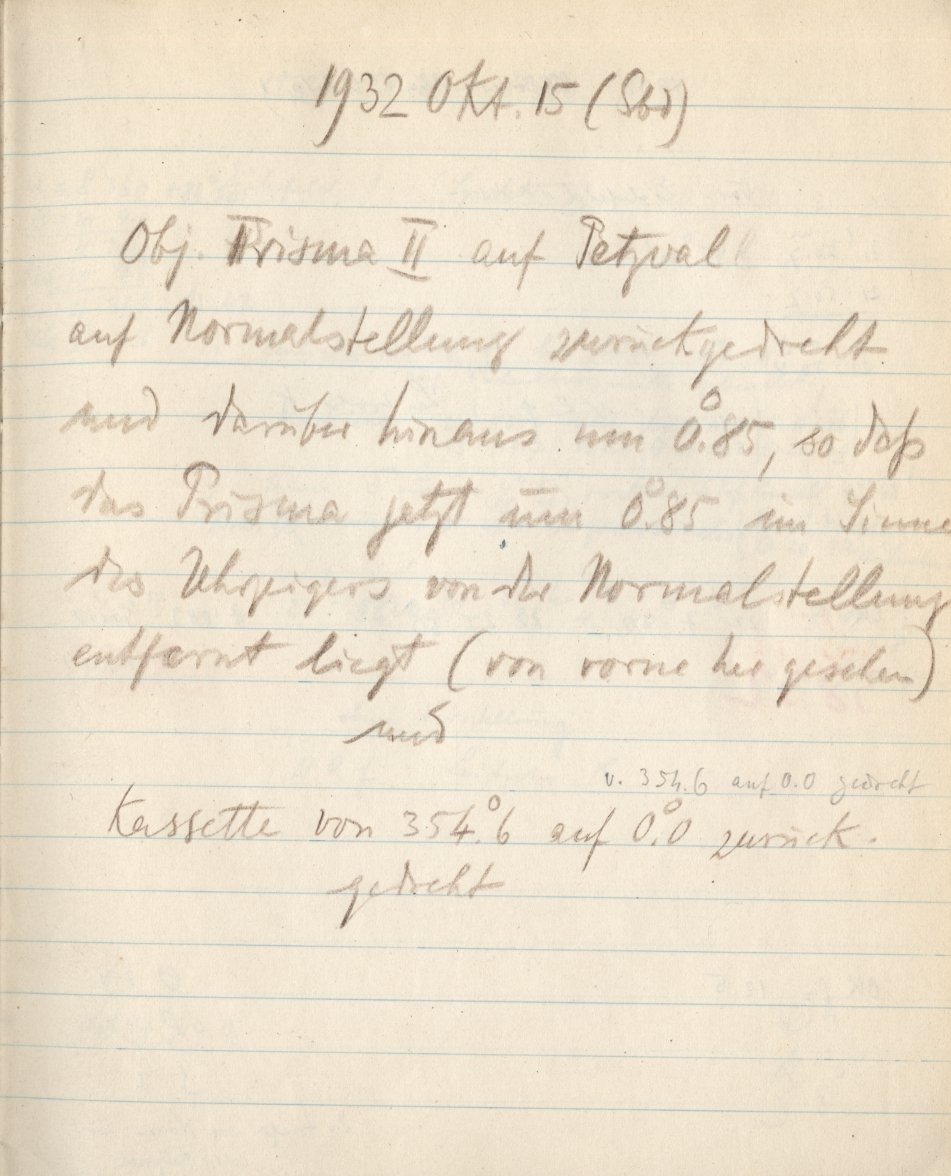 1932 Okt. 15 (Sbd)
Obj. Prisma II auf Petzval
auf Normalstellung zurückgedreht
und darüber hinaus um 0°.85, so daß
das Prisma jetzt um 0°.85 im Sinne
des Uhrzeigers von der Normalstellung
entfernt liegt (von vorne her gesehen)
und
v. 354.6 auf 0.0 gedreht
Kassette von 354°.6 auf 0°.0 zurück-
gedreht